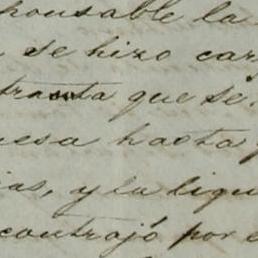 ponsable la
se hizo car
trata que se
esa hasta
ias, y la liqu
contrajó por e